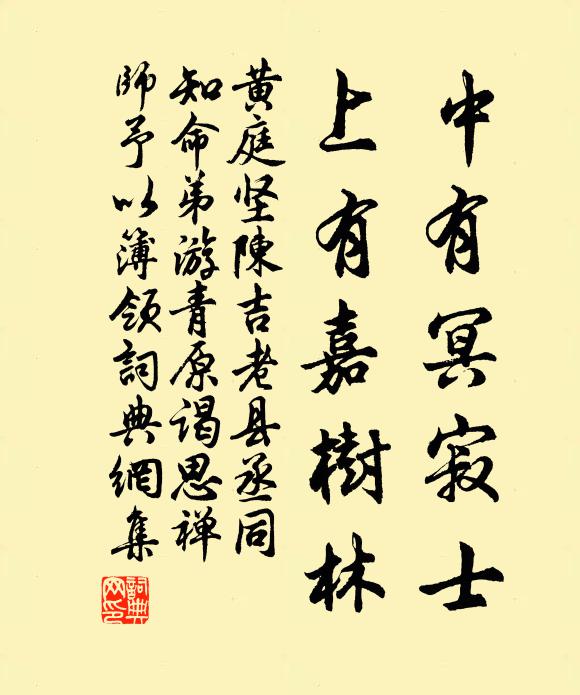 中有冥寂士
上有嘉樹林
黄庭坚陳吉老县丞同
知命弟游青原谒思禅
師予以簿領詞典網集
詞典网印